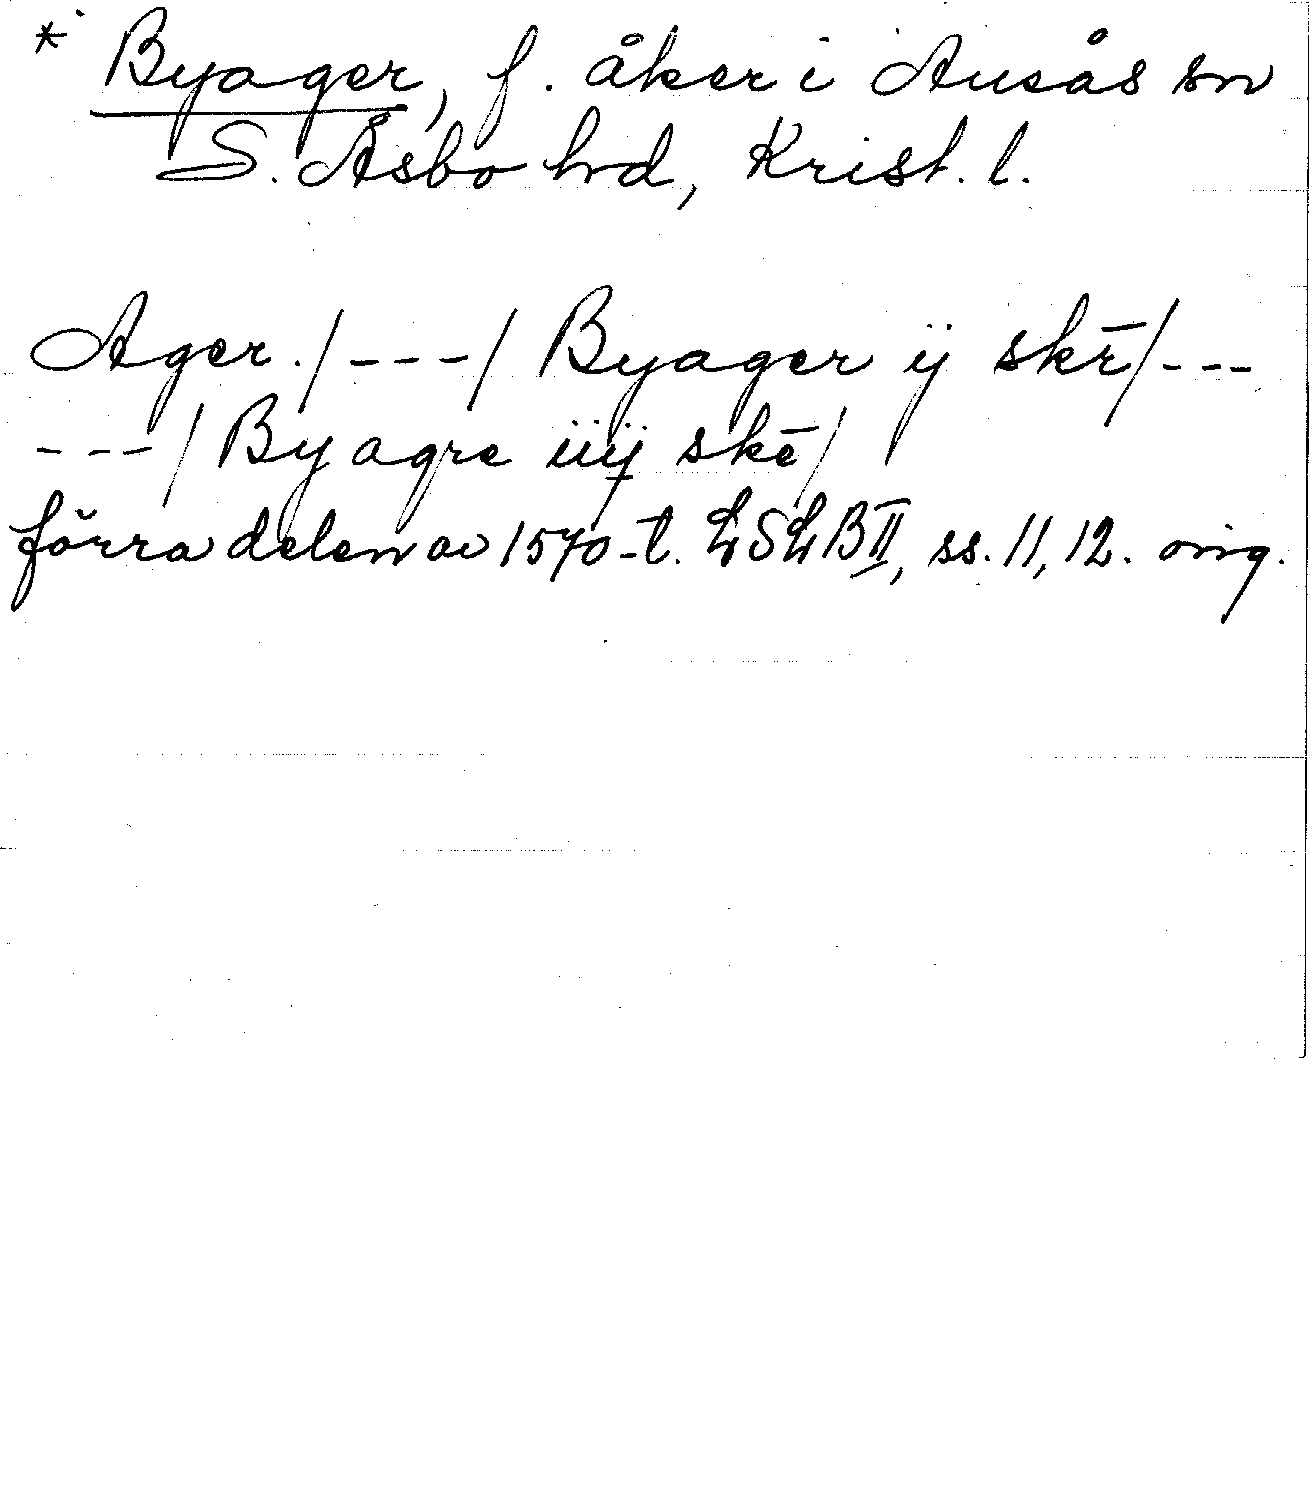 * Byager, f. åker i Ausås sn
S. Åsbo hd, Krist. l.
Ager./---/ Byager ij skr̄/---
---/ Byagre iiij skē/
förra delen av 1570-t. LSLB II, ss. 11, 12. orig.